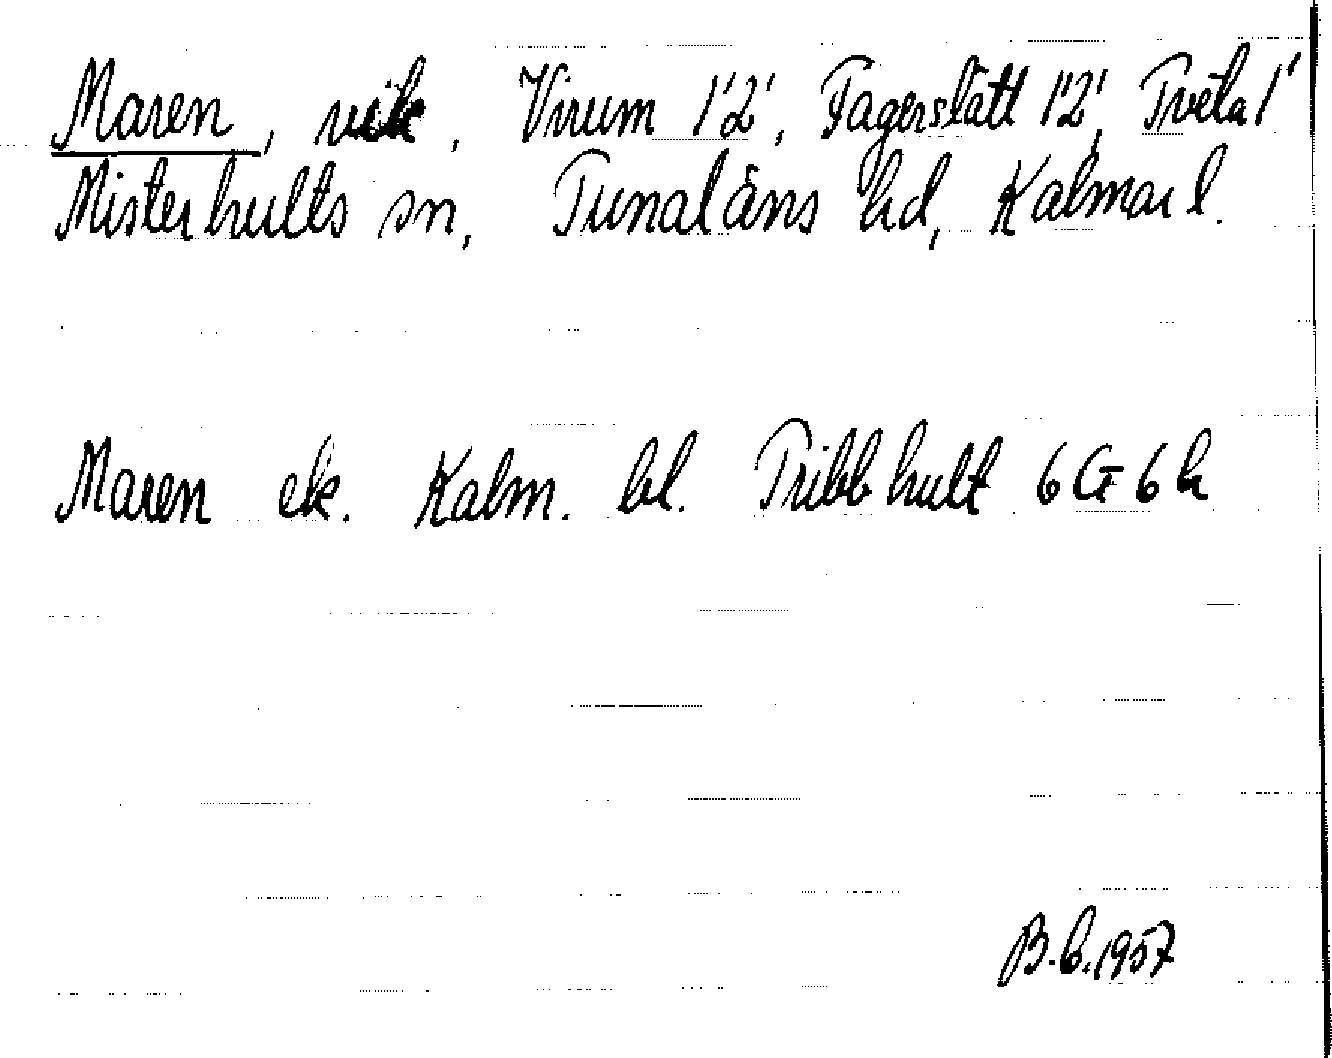 Maren, vik, Virum 1'2', Fagerslätt 1'2', Tveta 1'
Misterhults sn, Tunaläns hd, Kalmar l.
Maren ek. Kalm. bl. Tribbhult 6G6h
B.b.1957